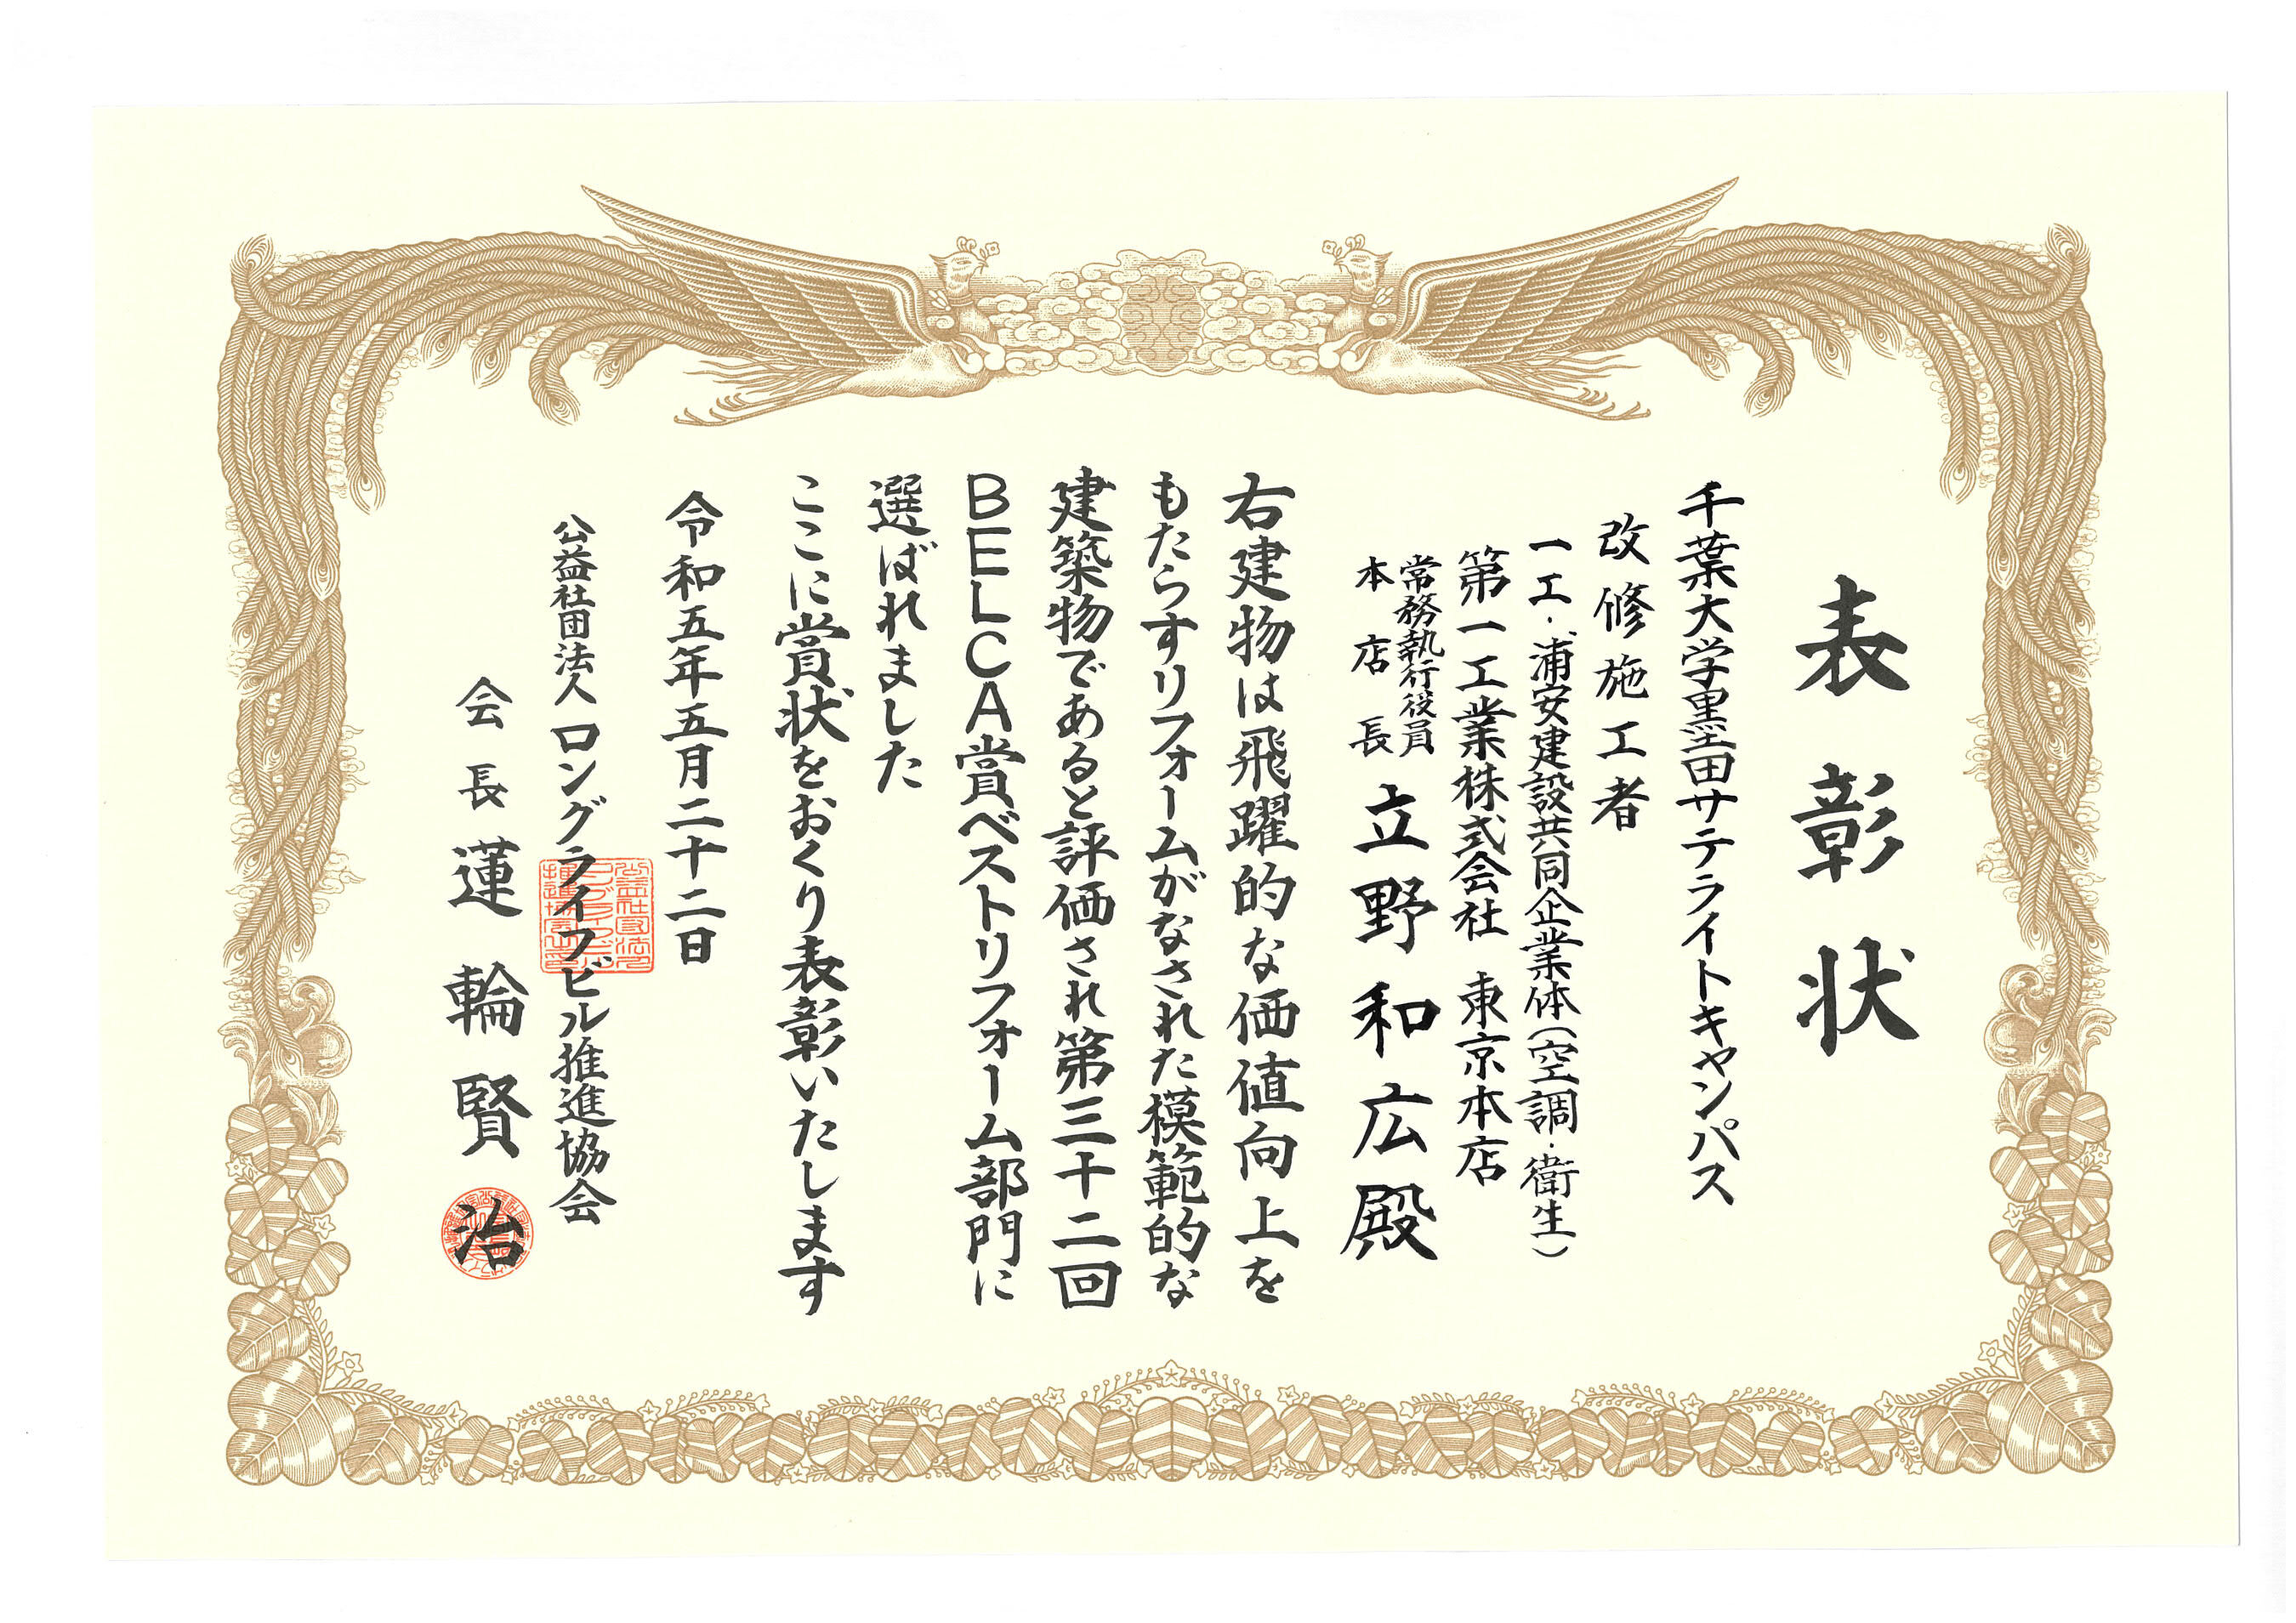 表彰状
千葉大学墨田サテライトキャンパス
改修施工者
一工・浦安建設共同企業体(空調・衛生)
第一工業株式会社 東京本店
常務執行役員
本店長 立野和広殿
右建物は飛躍的な価値向上を
もたらすリフォームがなされた模範的な
建築物であると評価され第三十二回
BELCA賞ベストリフォーム部門に
選ばれました
ここに賞状をおくり表彰いたします
令和五年五月二十二日
公益社団法人ロングライフビル推進協会
会長 蓮輪賢治